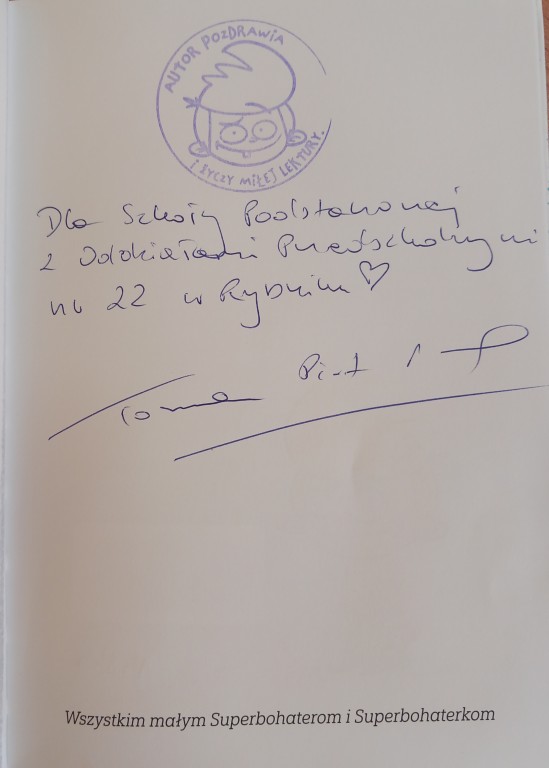 AUTOR POZDRAWIA
I ŻYCZY MIŁEJ LEKTURY.
Dla Szkoły Podstawowej
z Oddziałami Przedszkolnymi
nr 22 w Rybniku ♡
Wszystkim małym Superbohaterom i Superbohaterkom